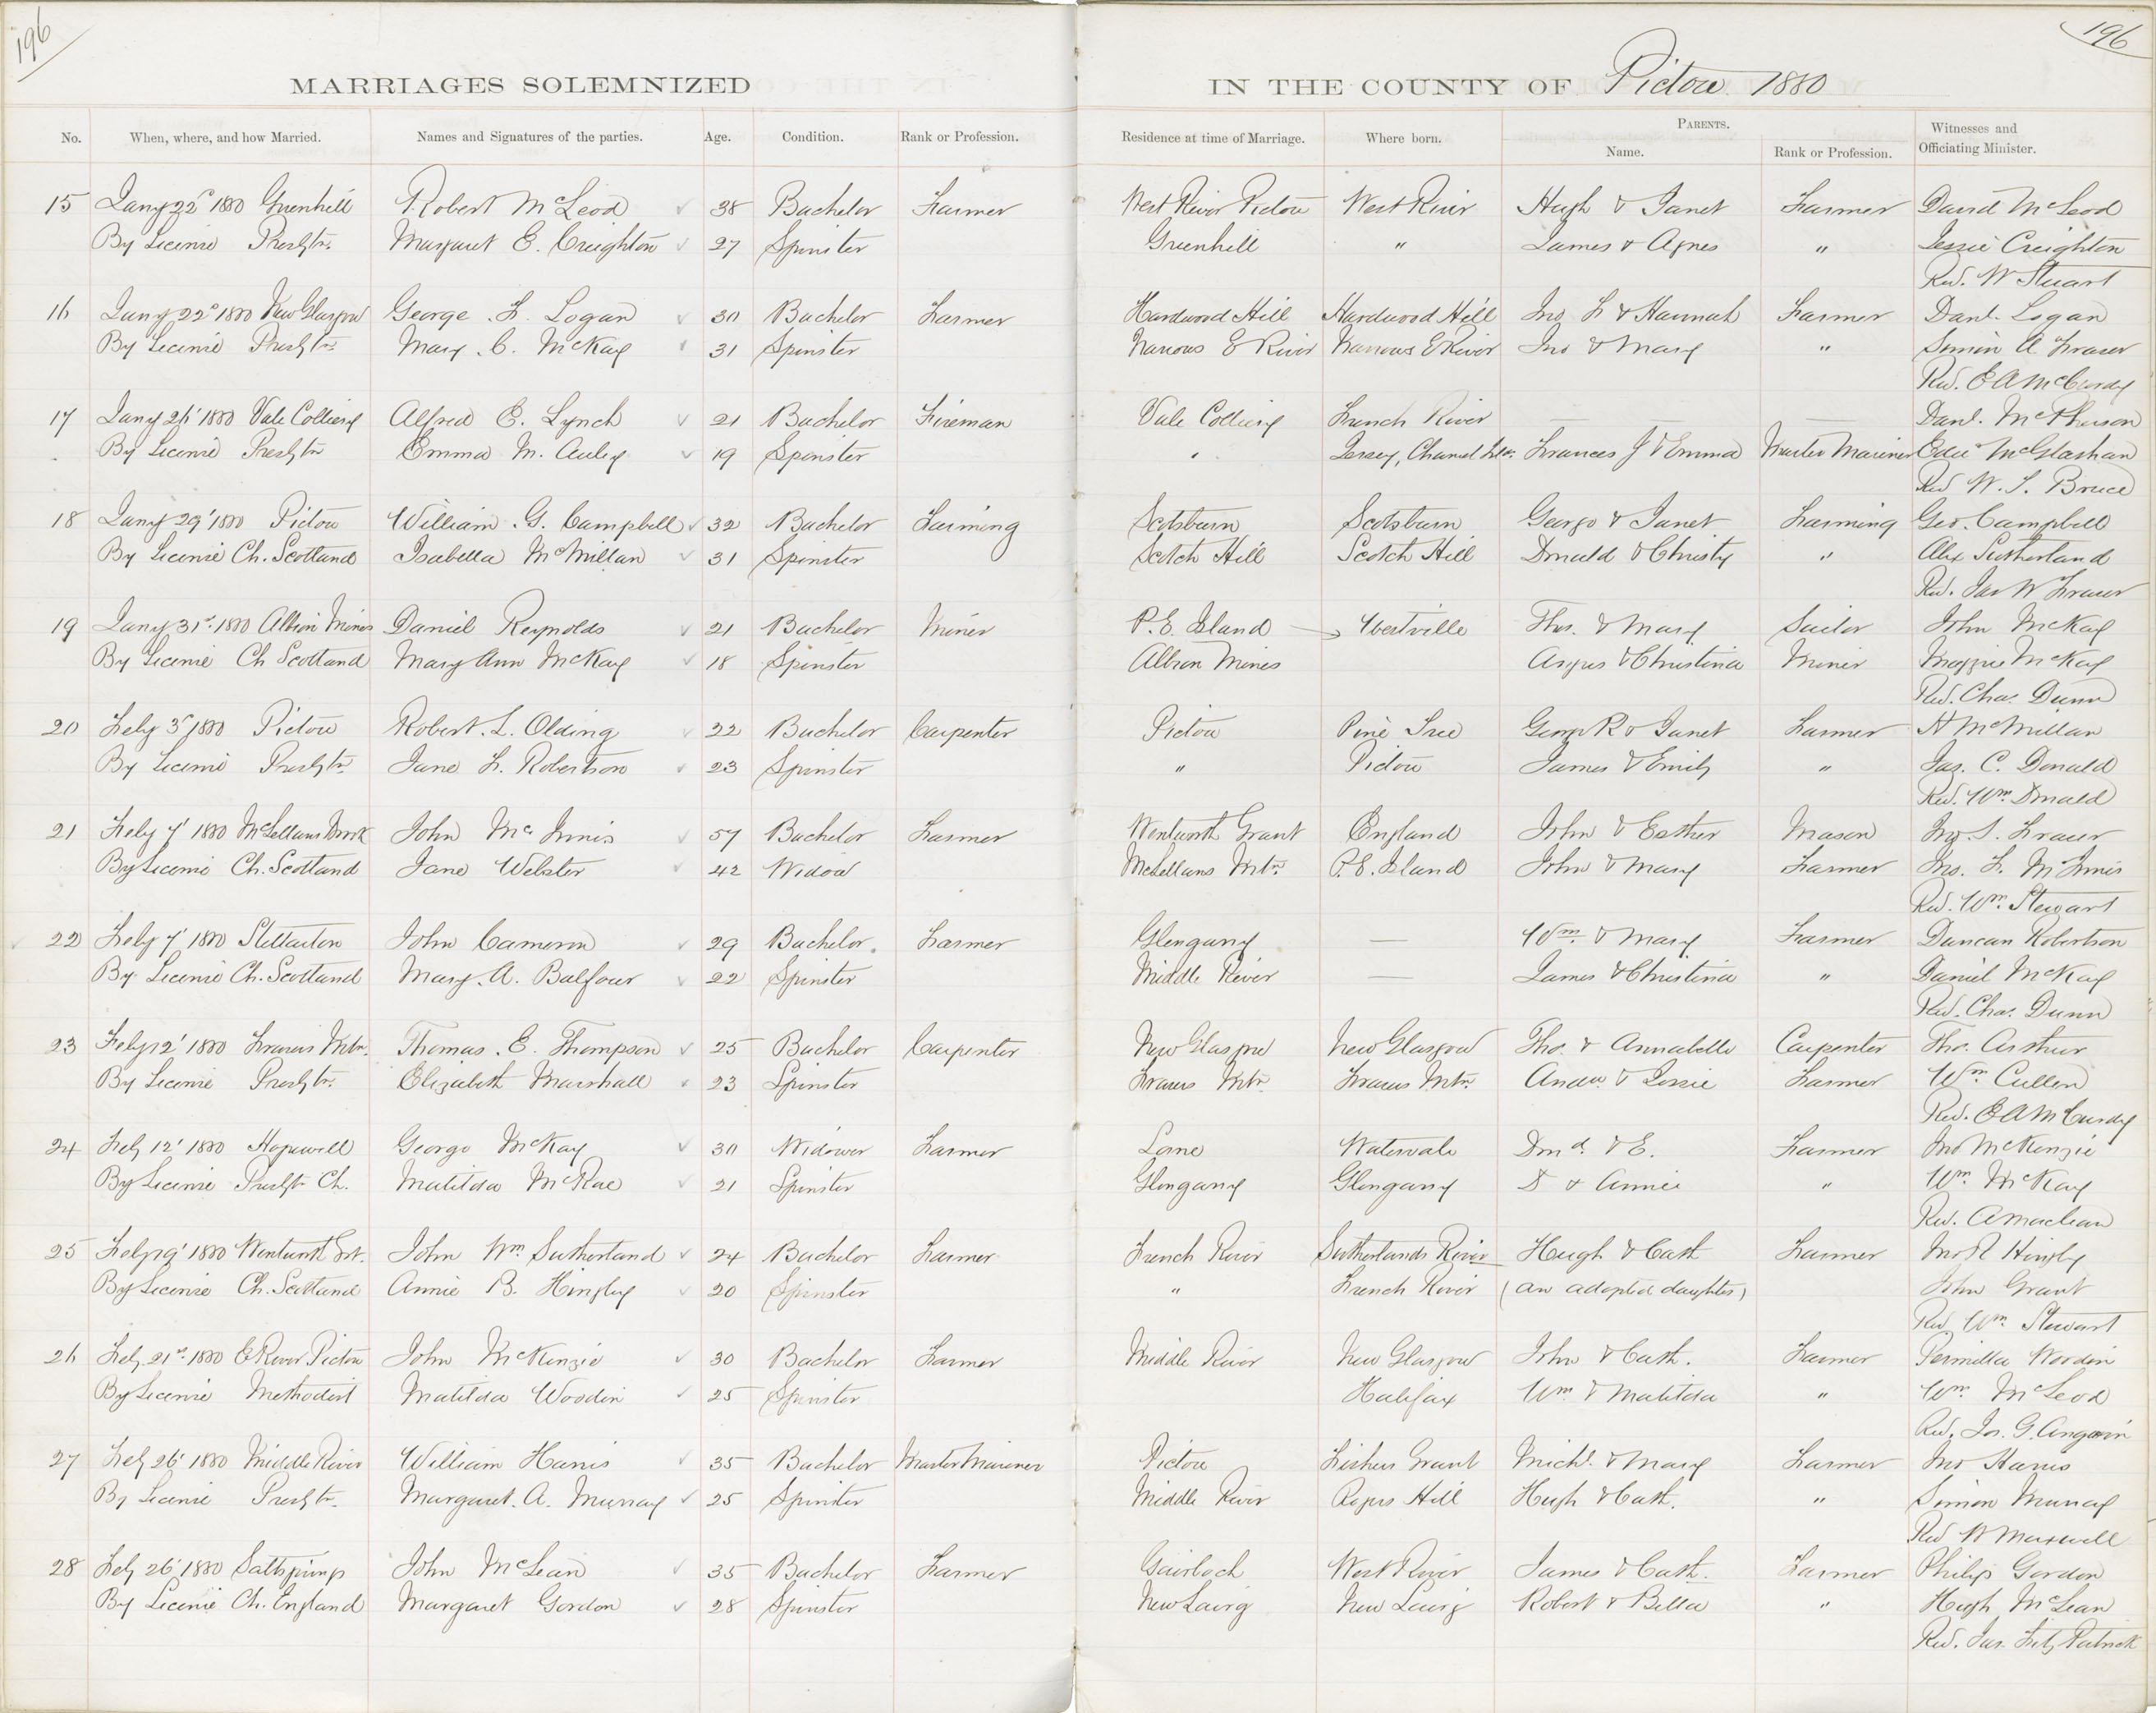 196
196
MARRIAGES SOLEMNIZED IN THE COUNTY OF Pictou 1880
No. When, where, and how Married. Names and Signatures of the parties. Age. Condition. Rank or Profession. Residence at time of Marriage. Where born. PARENTS. Witnesses and
Name. Rank or Profession. Officiating Minister.
15 Jany 22d 1880 Greenhill Robert McLeod 38 Bachelor Farmer West River Pictou West River Hugh & Janet Farmer David McLeod
By License Presbtn. Margaret E. Creighton 27 Spinster Greenhill " James & Agnes " Jessie Creighton
Rev. W Stuart
16 Jany 22d 1880 New Glasgow George F. Logan 30 Bachelor Farmer Hardwood Hill Hardwood Hill Jno F & Hannah Farmer Danl. Logan
By License Presbtn Mary C. McKay 31 Spinster Narrows E River Narrows E River Jno & Mary " Simon A. Fraser
Rev. E A McCurdy
17 Jany 26' 1880 Vale Colliery Alfred E. Lynch 21 Bachelor Fireman Vale Colliery French River — — Danl. McPherson
By License Presbtn Emma M. Auley 19 Spinster " Jersey, Channel Isls. Frances J & Emma Master Mariner Edie McGlashan
Rev W. S. Bruce
18 Jany 29' 1880 Pictou William G. Campbell 32 Bachelor Farming Scotsburn Scotsburn George & Janet Farming Geo. Campbell
By License Ch. Scotland Isabella McMillan 31 Spinster Scotch Hill Scotch Hill Donald & Christy " Alex Sutherland
Rev. Jas W Fraser
19 Jany 31st 1880 Albion Mines Daniel Reynolds 21 Bachelor Miner P. E. Island Thos. & Mary Sailor John McKay
By License Ch Scotland Mary Ann McKay 18 Spinster Albion Mines Angus & Christina Miner Maggie McKay
Rev. Chas. Dunn
20 Feby 3d 1880 Pictou Robert L. Olding 22 Bachelor Carpenter Pictou Pine Tree George R & Janet Farmer A McMillan
By License Presbtn. Jane F. Robertson 23 Spinster " Pictou James & Emily " Jas. C. Donald
Rev. Wm. Donald
21 Feby 7' 1880 McLellans Brook John McInnis 57 Bachelor Farmer Wentworth Grant England John & Esther Mason Jno. S. Fraser
By License Ch. Scotland Jane Webster 42 Widow McLellans Mtn. P. E. Island John & Mary Farmer Jno. F. McInnis
Rev. Wm. Stewart
22 Feby 7' 1880 Stellarton John Cameron 29 Bachelor. Farmer Glengarry — Wm. & Mary Farmer Duncan Robertson
By License Ch. Scotland Mary A. Balfour 22 Spinster Middle River — James & Christina " Daniel McKay
Rev. Chas. Dunn
23 Feby 12' 1880 Frasers Mtn. Thomas E. Thompson 25 Bachelor Carpenter New Glasgow New Glasgow Tho. & Annabella Carpenter Tho. Arthur
By License Presbtn. Elizabeth Marshall 23 Spinster Frasers Mtn. Frasers Mtn. Andw. & Jessie Farmer Wm. Cullen
Rev. E A McCurdy
24 Feby 12' 1880 Hopewell George McKay 30 Widower Farmer Lorne Watervale Dond. & E. Farmer Jno McKenzie
By License Presbtn Ch. Matilda McRae 21 Spinster Glengarry Glengarry D & Annie " Wm. McKay
Rev. A Maclean
25 Feby 19' 1880 Wentworth Grt. John Wm Sutherland 24 Bachelor Farmer French River Sutherlands River Hugh & Cath Farmer Jno R Hingley
By License Ch. Scotland Annie B. Hingley 20 Spinster " French River (an adopted daughter) John Grant
Rev Wm. Stewart
26 Feby 21st 1880 E River Pictou John McKenzie 30 Bachelor Farmer Middle River New Glasgow John & Cath. Farmer Permilla Woodin
By License Methodist Matilda Woodin 25 Spinster Halifax Wm & Matilda " Wm. McLeod
Rev. Jos. G. Angwin
27 Feby 26' 1880 Middle River William Harris 35 Bachelor Master Mariner Pictou Fishers Grant Michl. & Mary Farmer Jno Harris
By License Presbtn. Margaret A. Murray 25 Spinster Middle River Rogers Hill Hugh & Cath. " Simon Murray
Rev W Maxwell
28 Feby 26' 1880 Saltsprings John McLean 35 Bachelor Farmer Gairloch West River James & Cath. Farmer Philip Gordon
By License Ch. England Margaret Gordon 28 Spinster New Lairg New Lairg Robert & Bella " Hugh McLean
Rev. Jas. Fitz Patrick